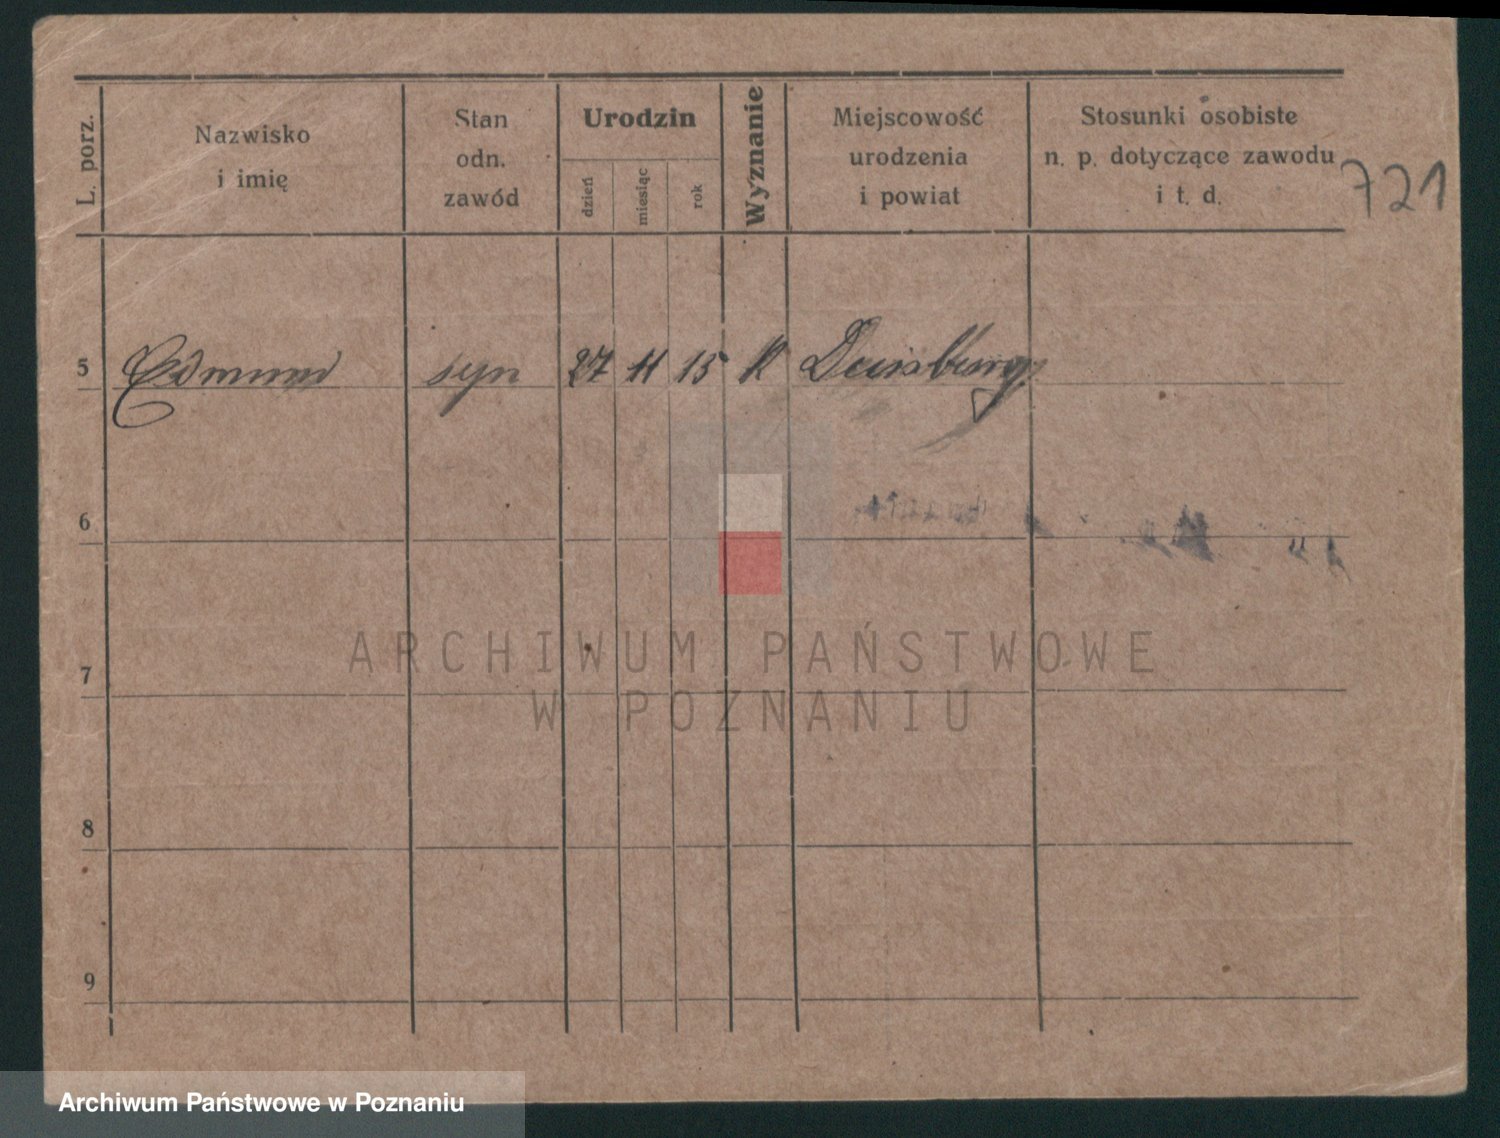 L. porz.
Nazwisko
i imię
Stan
odn.
zawód
Urodzin
dzień
miesiąc
rok
Wyznanie
Miejscowość
urodzenia
i powiat
Stosunki osobiste
n. p. dotyczące zawodu
i t. d.
721
5 Edmund syn 27 11 15 k Duisburg
6
7
8
9
ARCHIWUM PAŃSTWOWE
W POZNANIU
Archiwum Państwowe w Poznaniu